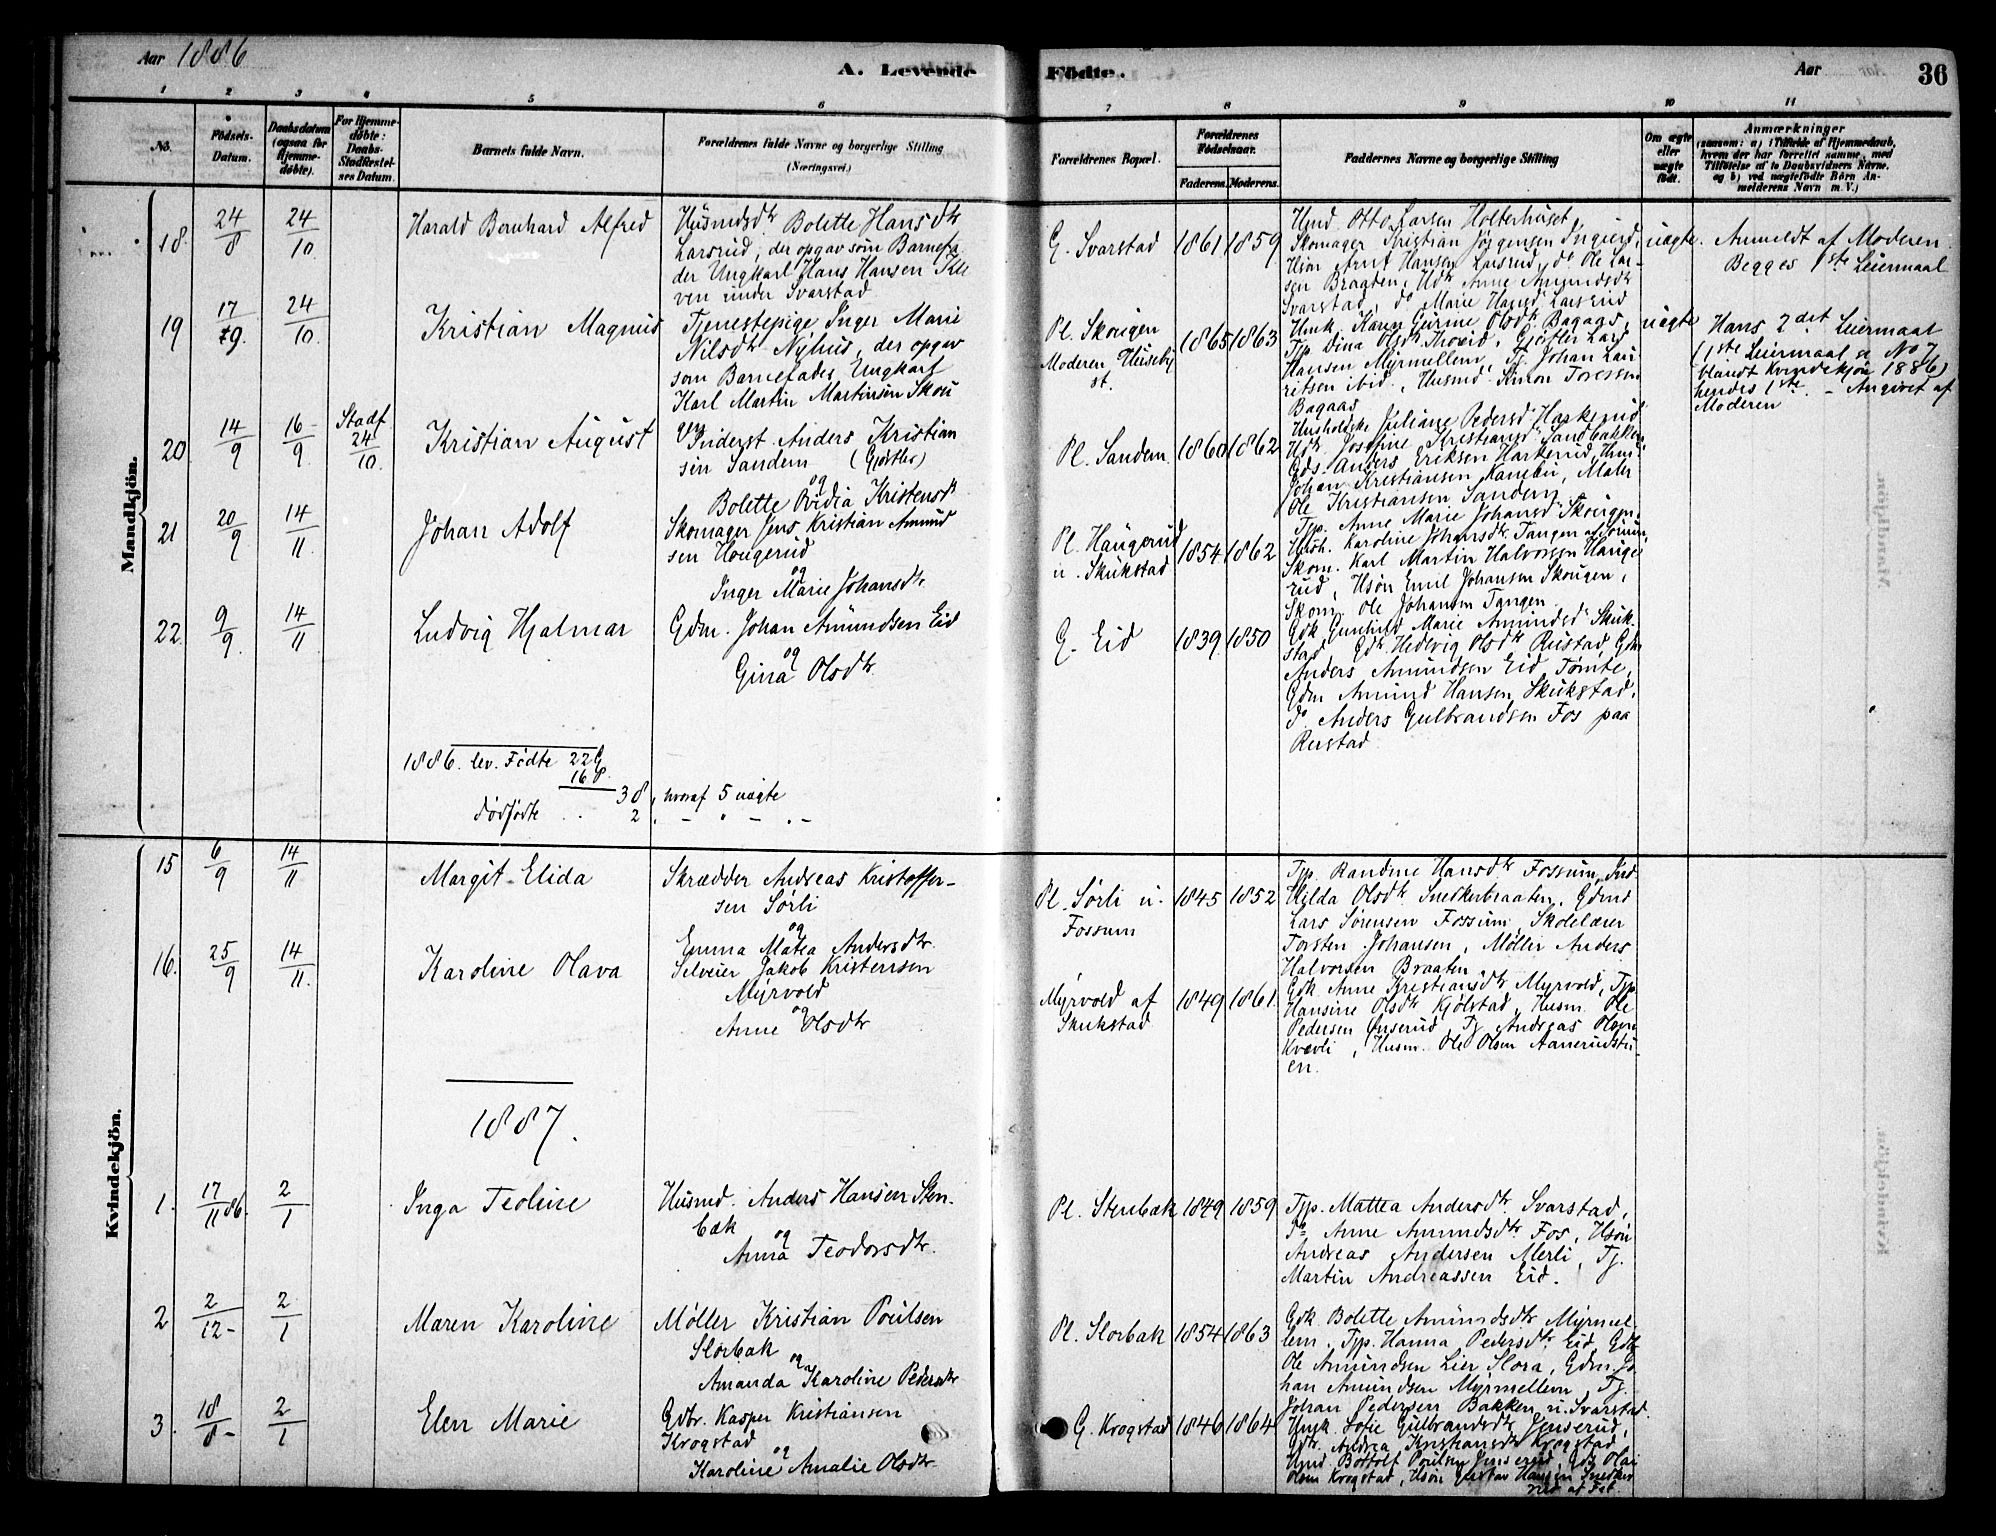 Aar 1886
A. Levende Födte.
Aar
36
1 2 3 4 5 6 7 8 9 10 11
No.
Födsels-Datum.
Daabsdatum (ogsaa for Hjemme-döbte).
For Hjemme-döbte: Daabs-Stadfæstel-ses Datum.
Barnets fulde Navn.
Forældrenes fulde Navne og borgerlige Stilling
(Næringsvei.)
Forældrenes Bopæl.
Forældrenes Födselsaar.
Faderens. Moderens.
Faddernes Navne og borgerlige Stilling
Om ægte eller uægte födt.
Anmærkninger
(saasom: a) i Tilfælde af Hjemmedaab, hvem der har forrettet samme, med Tilföielse af to Daabsvidners Navne, og b) ved uægtefödte Börn An-melderens Navn m. V.)
Mandkjön.
18. 24/8 24/10 Harald Bernhard Alfred
Husmdsdtr Bolette Hansdtr
Larsrud, der opgav som Barnefa
der Ungkarl Hans Hansen Kle
ven under Svarstad
G. Svarstad 1861 1859
Hmd. Otto Larsen Holterhuset,
Skomager Kristian Jörgensen
Hsön Arnt Hansen Larsrud, do Ole Lar-
sen Bragden, Hdtr Anne Amundsdtr
Svarstad, do Marie Hansd. Larsrud
uægte. Anmeldt af Moderen
Begges 1ste Leiermaal
19 17/9. 24/10. Kristian Magnus
Tjenestepige Inger Marie
Nilsdtr Nyhus, der opgav
som Barnefader Ungkarl
Karl Martin Martinsen Skou
gen
Pl. Skougen
Moderen Huseby
st.
1865 1863
Hmk. Karen Gurine Olsdtr Bagaas,
Typ. Dina Olsdtr Gjörtler Lars
Hansen Myrmellem, Tj. Johan Lau
ritsen ibid, Husmd. Simon Toressen
Bagaas
uægte Hans 2det Leiermaal
(1ste Leiermaal se No 7
blandt Kvindekjön 1886)
hendes 1ste. - Angivet af
Moderen
20. 14/9 16/9. Stadf. 24/10. Kristian August
Inderst Anders Kristian
sen Sandem (Gjörtler)
og
Bolette Ovidia Kristensdtr
Pl. Sandem 1860 1862
Husholdske Juliane Pedersd Harkerud
Hdtr Josefine Kristiansd Sandbakken,
Gds. Anders Eriksen Harkerud,
Johan Kristiansen Maler
Ole Kristiansen Sandem
21 20/9 14/11. Johan Adolf
Skomager Jens Kristian Amund
sen Hougerud
og
Inger Marie Johansdtr
Pl. Haugerud
u. Skukstad
1854 1862
Typ. Anne Marie Johansd Skougen,
Hush. Karoline Johansdtr Tangen
Skom. Karl Martin Halvorsen Hauge
rud, Hsön Emil Johansen Skougen,
Skom. Ole Johansen Tangen
22. 9/9. 14/11 Ludvig Hjalmar
Gdm. Johan Amundsen Eid
og
Gina Olsdtr
G. Eid 1839 1850
Gdk Gunhild Marie Amundsd Skuk-
stad, Gdtr Hedevig Olsdtr Rustad, Gdm
Anders Amundsen Eid Tomte,
Gdm Amund Hansen Skukstad,
do Anders Gulbrandsen Fos paa
Rustad
1886. lev. Födte 22 G
16 P.
38, hvoraf 5 uægte
dödfödte . . 2, - " - " -
Kvindekjön.
15 6/9 14/11 Margit Elida
Skrædder Andreas Kristoffer-
sen Sörli
og
Emma Matea Andersdtr.
Pl. Sörli u.
Fossum
1845 1852
Typ. Randine Hansdtr Fossum,
Hilda Olsdtr Snedkerbraaten, Gdmd
Lars Sörensen Fossum, Skolelærer
Torsten Johansen, Möller Anders
Halvorsen Braaten
16. 25/9 14/11. Karoline Olava
Selveier Jakob Kristensen
Myrvold
og
Anne Olsdtr
Myrvold af
Skukstad
1849 1861.
Gdk. Anne Kristiansdtr Myrvold, Typ.
Hansine Olsdtr Kjölstad, Husm. Ole
Pedersen Önserud, Tj. Andreas Olsen
Kvævli, Husm. Ole Olsen Aanerudstu-
en.
1887.
1. 17/11 86. 2/1 Inga Teoline
Husmd. Anders Hansen Sten-
bæk
og
Anna Teodorsdtr.
Pl. Stenbæk 1849 1859
Typ. Mattea Andersdtr. Svarstad,
do Anne Amundsdtr Fos, Hsön
Andreas Andersen Merli, Tj.
Martin Andreassen Eid.
2 2/12- 2/1 Maren Karoline
Möller Kristian Poulsen
Slorbak
og
Amanda Karoline Pedersdtr
Pl. Slorbak 1854 1863
Gdk. Bolette Amundsdtr Myrmel-
lem, Typ. Hanna Pedersdtr Eid, Gdb
Ole Amundsen Lier Slora, Gdm. Jo
han Amundsen Myrmellem, Tj.
Johan Pedersen Bakken u. Svarstad.
3. 18/8- 2/1 Elen Marie
Gdbr. Kasper Kristiansen
Krogstad
og
Karoline Amalie Olsdtr.
G. Krogstad 1846 1864
Hmk. Sofie Gulbrandsdtr Jenserud,
Gdtr. Andrea Kristiansdtr Krogstad,
Hmd. Bottolf Poulsen Jenserud, Gdb Olai
Olsen Krogstad, Hsön Gustav Hansen Snedke
rud af Fet.